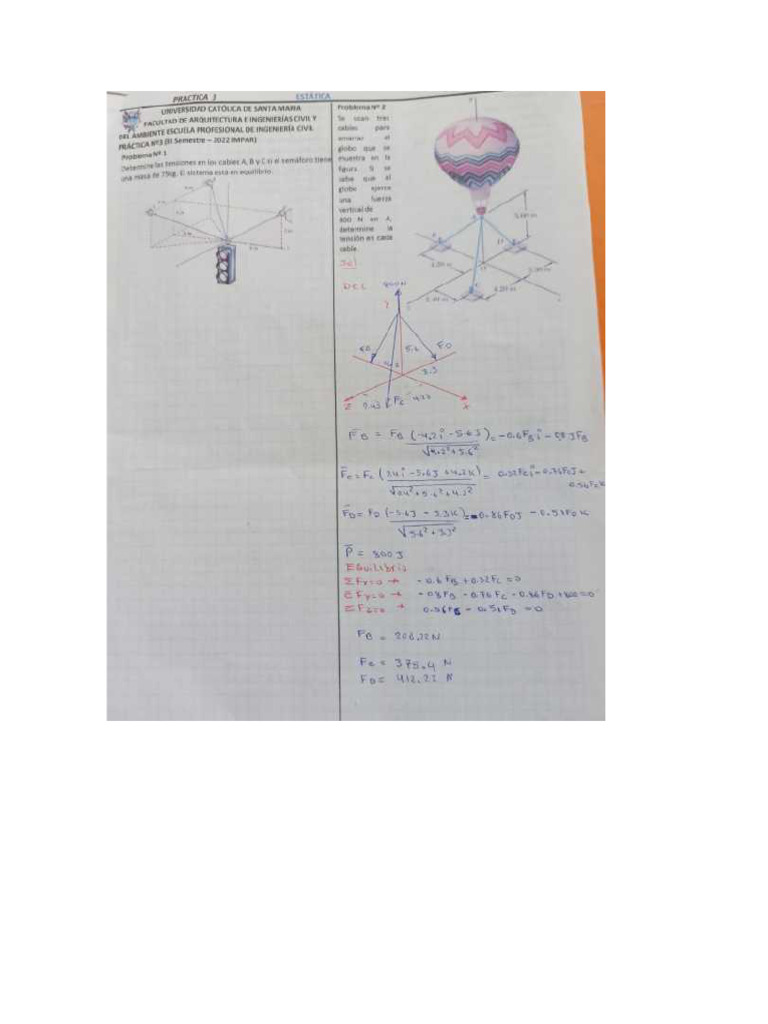 PRACTICA 3 ESTÁTICA
UNIVERSIDAD CATÓLICA DE SANTA MARIA
FACULTAD DE ARQUITECTURA E INGENIERÍAS CIVIL Y
DEL AMBIENTE ESCUELA PROFESIONAL DE INGENIERÍA CIVIL
PRÁCTICA Nº3 (II Semestre – 2022 IMPAR)
Problema Nº 1
Determine las tensiones en los cables A, B y C si el semáforo tiene
una masa de 75kg. El sistema está en equilibrio.
Problema Nº 2
Se usan tres
cables para
amarrar el
globo que se
muestra en la
figura. Si se
sabe que el
globo ejerce
una fuerza
vertical de
800 N en A,
determine la
tensión en cada
cable.
Sol
D.C.L
Y
5.6
F.D
3.3
Fc
Z
X
4.20 m
3.30 m
4.20 m
F̅B = FB (-4.2i - 5.6J) = -0.6FBi - 0.8JFB
√4.2²+5.6²
F̅c = Fc (2.4i - 5.6J + 4.2K) = 0.32Fci - 0.76FcJ +
0.56FcK
√2.4²+5.6²+4.2²
F̅D = FD (-5.6J - 3.3K) = -0.86FDJ - 0.51FDK
√5.6²+3.3²
P̅ = 800J
Equilibrio
ΣFx=0 → -0.6FB + 0.32Fc = 0
ΣFy=0 → -0.8FB - 0.76Fc - 0.86FD + 800 = 0
ΣFz=0 → 0.56FB - 0.51FD = 0
Fc = 375.4 N
FD = 412.22 N